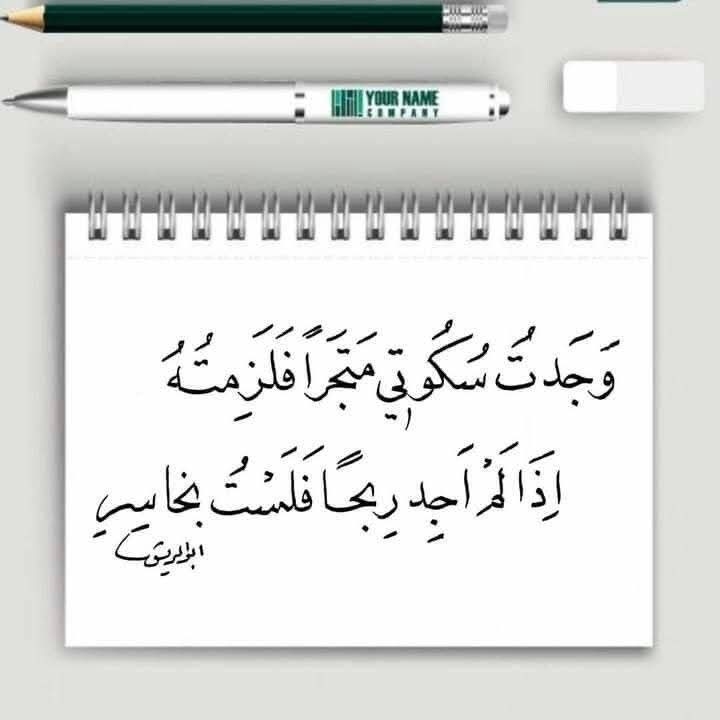 YOUR NAME
COMPANY
وَجَدتُ سُكُوتِي مَتجَراً فَلَزِمتُهُ
اِذَا لَمْ اَجِد رِبحًا فَلَسْتُ بخاسِرِ